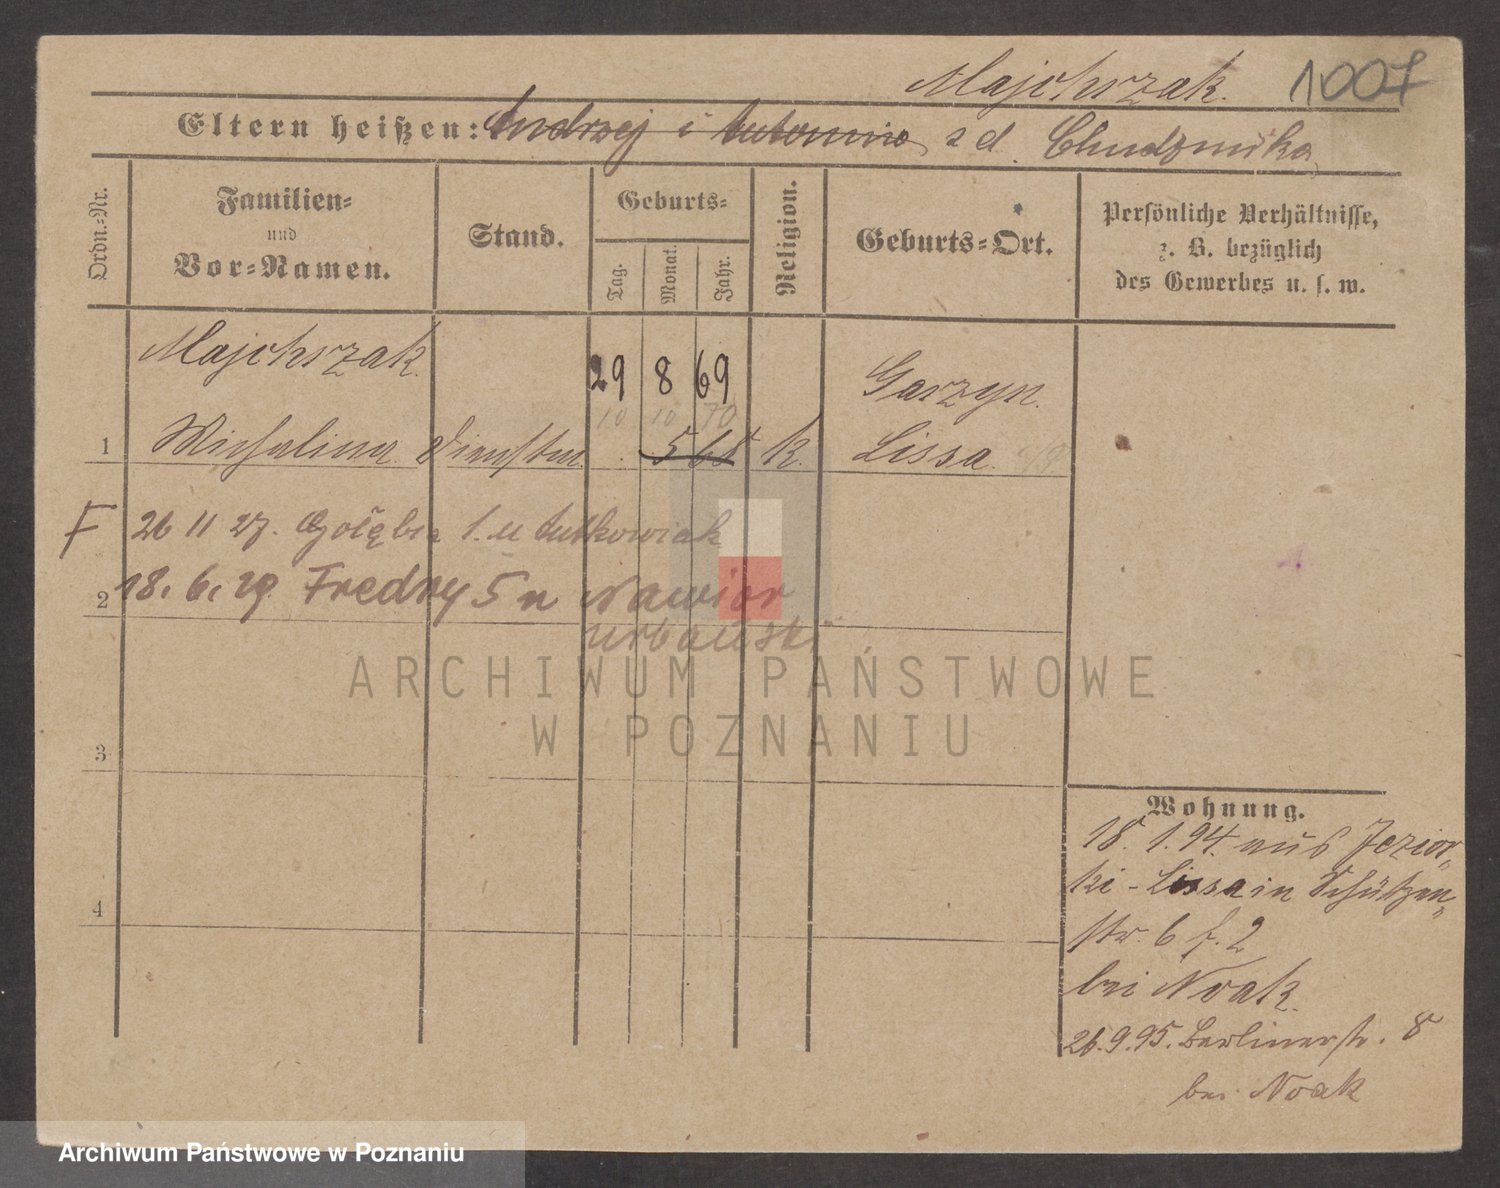 Majchrzak.
1007
Eltern heißen: Andrzej i Antonina z d. Chudzinska
Ordn.-Nr.
Familien-
und
Vor-Namen.
Stand.
Geburts-
Tag.
Monat.
Jahr.
Religion.
Geburts-Ort.
Persönliche Verhältnisse,
z. B. bezüglich
des Gewerbes u. s. w.
Majchrzak. 29 8 69 Garzyn.
10 10 70
1 Michalina Dienstm. 5 68 k. Lissa
F 26 11 27. Gołębia 1. u Lutkowiak
2 18. 6. 29 Fredry 5 u Nawior
Urbański
3
4
Wohnung.
18. 1. 94. aus Jezior-
ki - Lissa in Schützen-
str. 6 f. 2
bei Noak.
26. 9. 95. Berlinerstr. 8
bei Noak
ARCHIWUM PAŃSTWOWE
W POZNANIU
Archiwum Państwowe w Poznaniu